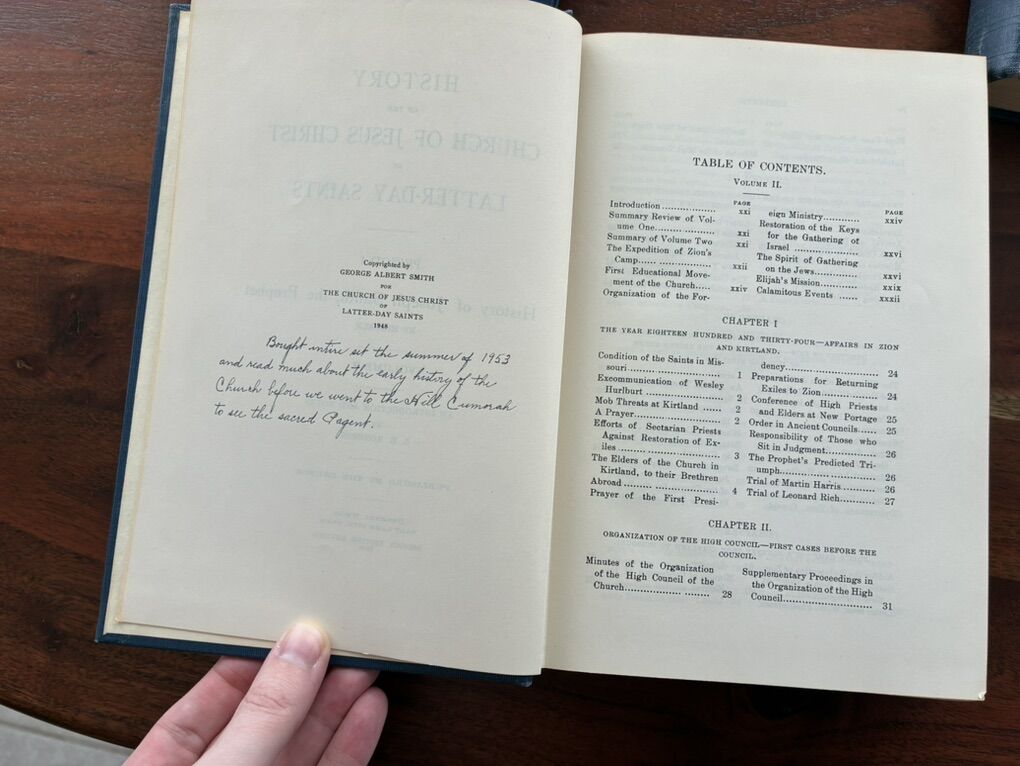 Copyrighted by
GEORGE ALBERT SMITH
FOR
THE CHURCH OF JESUS CHRIST
OF
LATTER-DAY SAINTS
1948
Bought intire set the summer of 1953
and read much about the early history of the
Church before we went to the Hill Cumorah
to see the sacred Pagent.
TABLE OF CONTENTS.
VOLUME II.
PAGE
Introduction .................. xxi
Summary Review of Vol-
ume One.................... xxi
Summary of Volume Two xxi
The Expedition of Zion's
Camp...... ................ xxii
First Educational Move-
ment of the Church..... xxiv
Organization of the For-
PAGE
eign Ministry............ xxiv
Restoration of the Keys
for the Gathering of
Israel ..................... xxvi
The Spirit of Gathering
on the Jews............... xxvi
Elijah's Mission........... xxix
Calamitous Events ...... xxxii
CHAPTER I
THE YEAR EIGHTEEN HUNDRED AND THIRTY-FOUR—AFFAIRS IN ZION
AND KIRTLAND.
Condition of the Saints in Mis-
souri ............................ 1
Excommunication of Wesley
Hurlburt ........................ 2
Mob Threats at Kirtland ...... 2
A Prayer......................... 2
Efforts of Sectarian Priests
Against Restoration of Ex-
iles ............................... 3
The Elders of the Church in
Kirtland, to their Brethren
Abroad .......................... 4
Prayer of the First Presi-
dency........................... 24
Preparations for Returning
Exiles to Zion................ 24
Conference of High Priests
and Elders at New Portage 25
Order in Ancient Councils..... 25
Responsibility of Those who
Sit in Judgment.............. 26
The Prophet's Predicted Tri-
umph........................... 26
Trial of Martin Harris.......... 26
Trial of Leonard Rich.......... 27
CHAPTER II.
ORGANIZATION OF THE HIGH COUNCIL—FIRST CASES BEFORE THE
COUNCIL.
Minutes of the Organization
of the High Council of the
Church.................. ........ 28
Supplementary Proceedings in
the Organization of the High
Council........................... 31